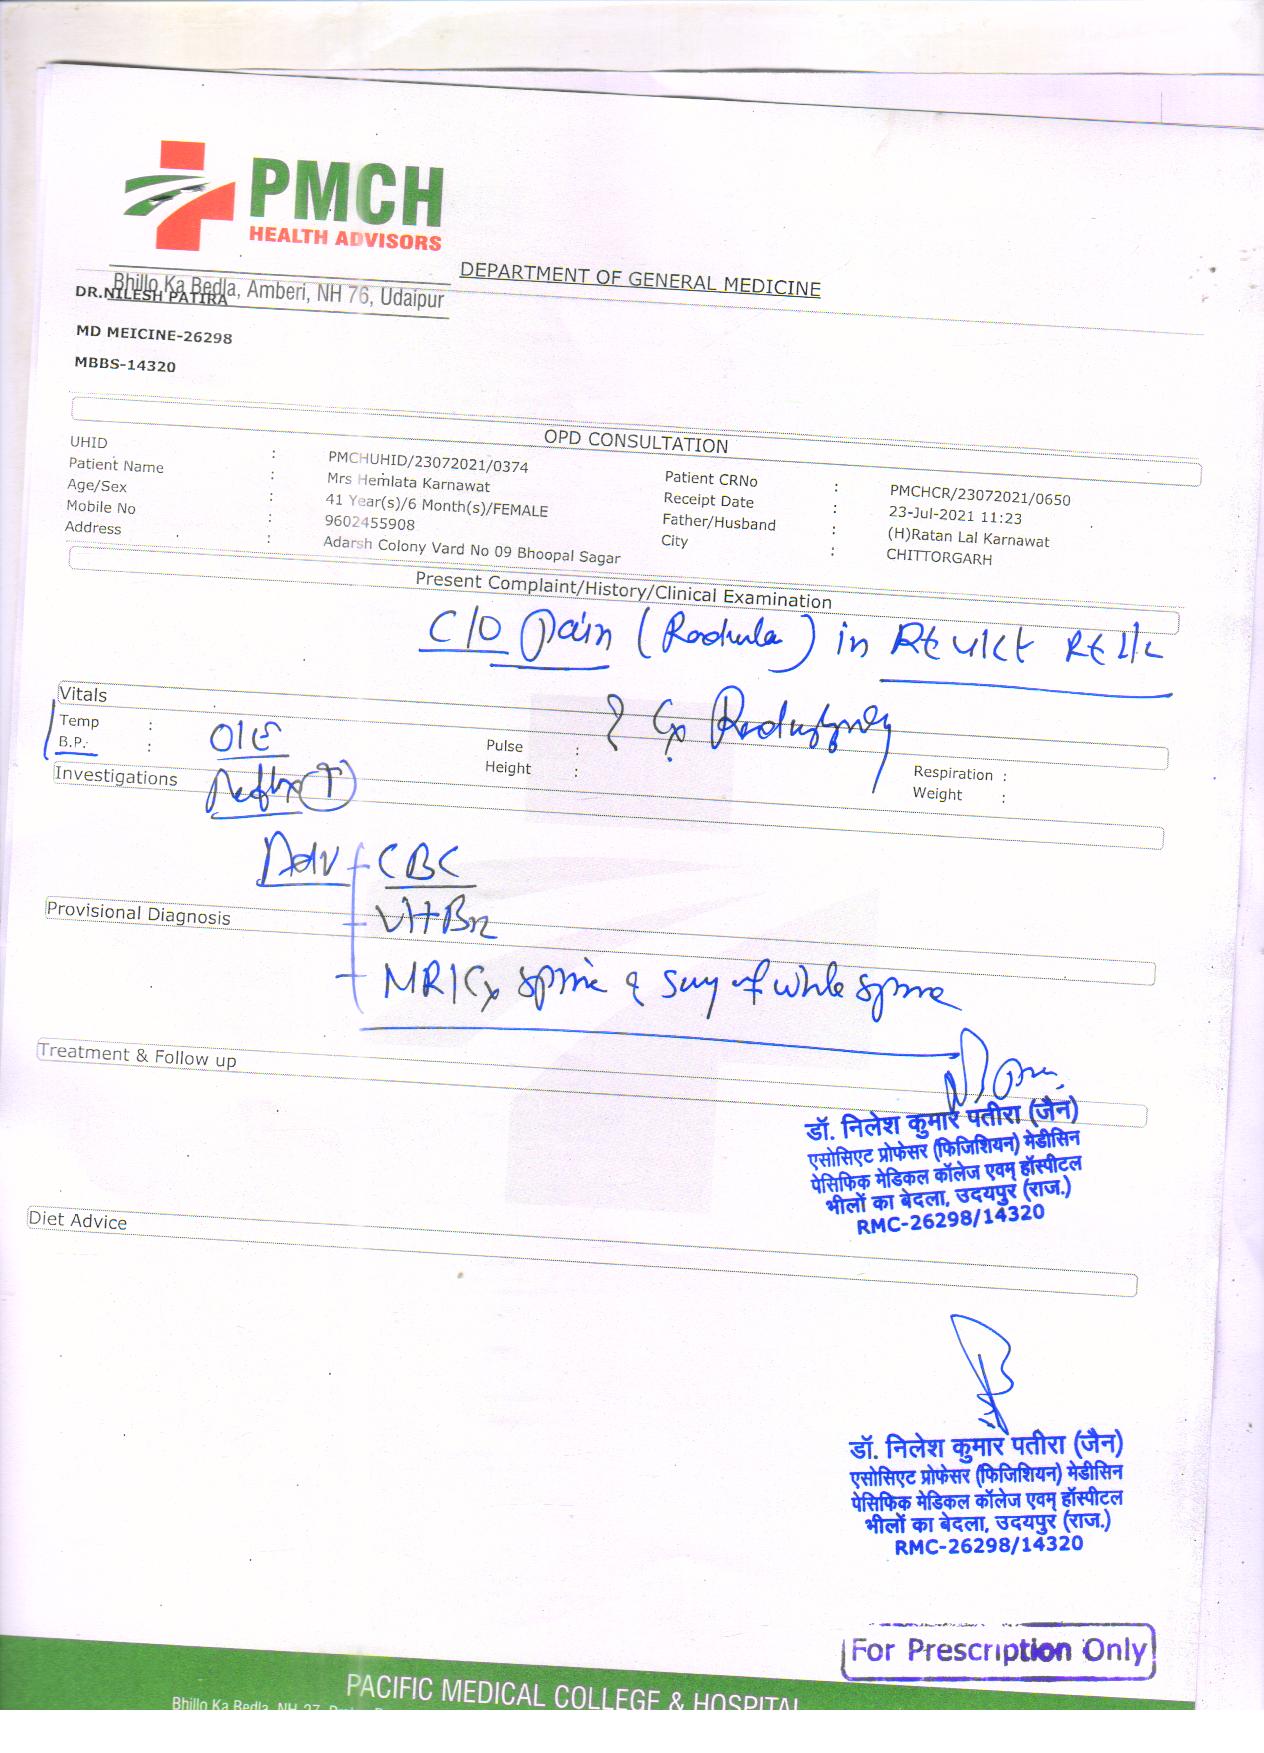 PMCH
HEALTH ADVISORS
Bhillo Ka Bedla, Amberi, NH 76, Udaipur
DEPARTMENT OF GENERAL MEDICINE
DR.NILESH PATIRA
MD MEICINE-26298
MBBS-14320
OPD CONSULTATION
UHID : PMCHUHID/23072021/0374 Patient CRNo : PMCHCR/23072021/0650
Patient Name : Mrs Hemlata Karnawat Receipt Date : 23-Jul-2021 11:23
Age/Sex : 41 Year(s)/6 Month(s)/FEMALE Father/Husband : (H)Ratan Lal Karnawat
Mobile No : 9602455908 City : CHITTORGARH
Address : Adarsh Colony Vard No 09 Bhoopal Sagar
Present Complaint/History/Clinical Examination
C/O pain ( ) in Rt Rt L/L
Vitals
? Cx
Temp : O/E Pulse : Respiration :
B.P. : Height : Weight :
Investigations
(↑)
Adv CBC
Vit B12
Provisional Diagnosis
MRI Cx spine of whole spine
Treatment & Follow up
डॉ. निलेश कुमार पतीरा (जैन)
एसोसिएट प्रोफेसर (फिजिशियन) मेडीसिन
पेसिफिक मेडिकल कॉलेज एवम् हॉस्पीटल
भीलों का बेदला, उदयपुर (राज.)
RMC-26298/14320
Diet Advice
डॉ. निलेश कुमार पतीरा (जैन)
एसोसिएट प्रोफेसर (फिजिशियन) मेडीसिन
पेसिफिक मेडिकल कॉलेज एवम् हॉस्पीटल
भीलों का बेदला, उदयपुर (राज.)
RMC-26298/14320
For Prescription Only
PACIFIC MEDICAL COLLEGE & HOSPITAL
Bhillo Ka Bedla, NH-27,